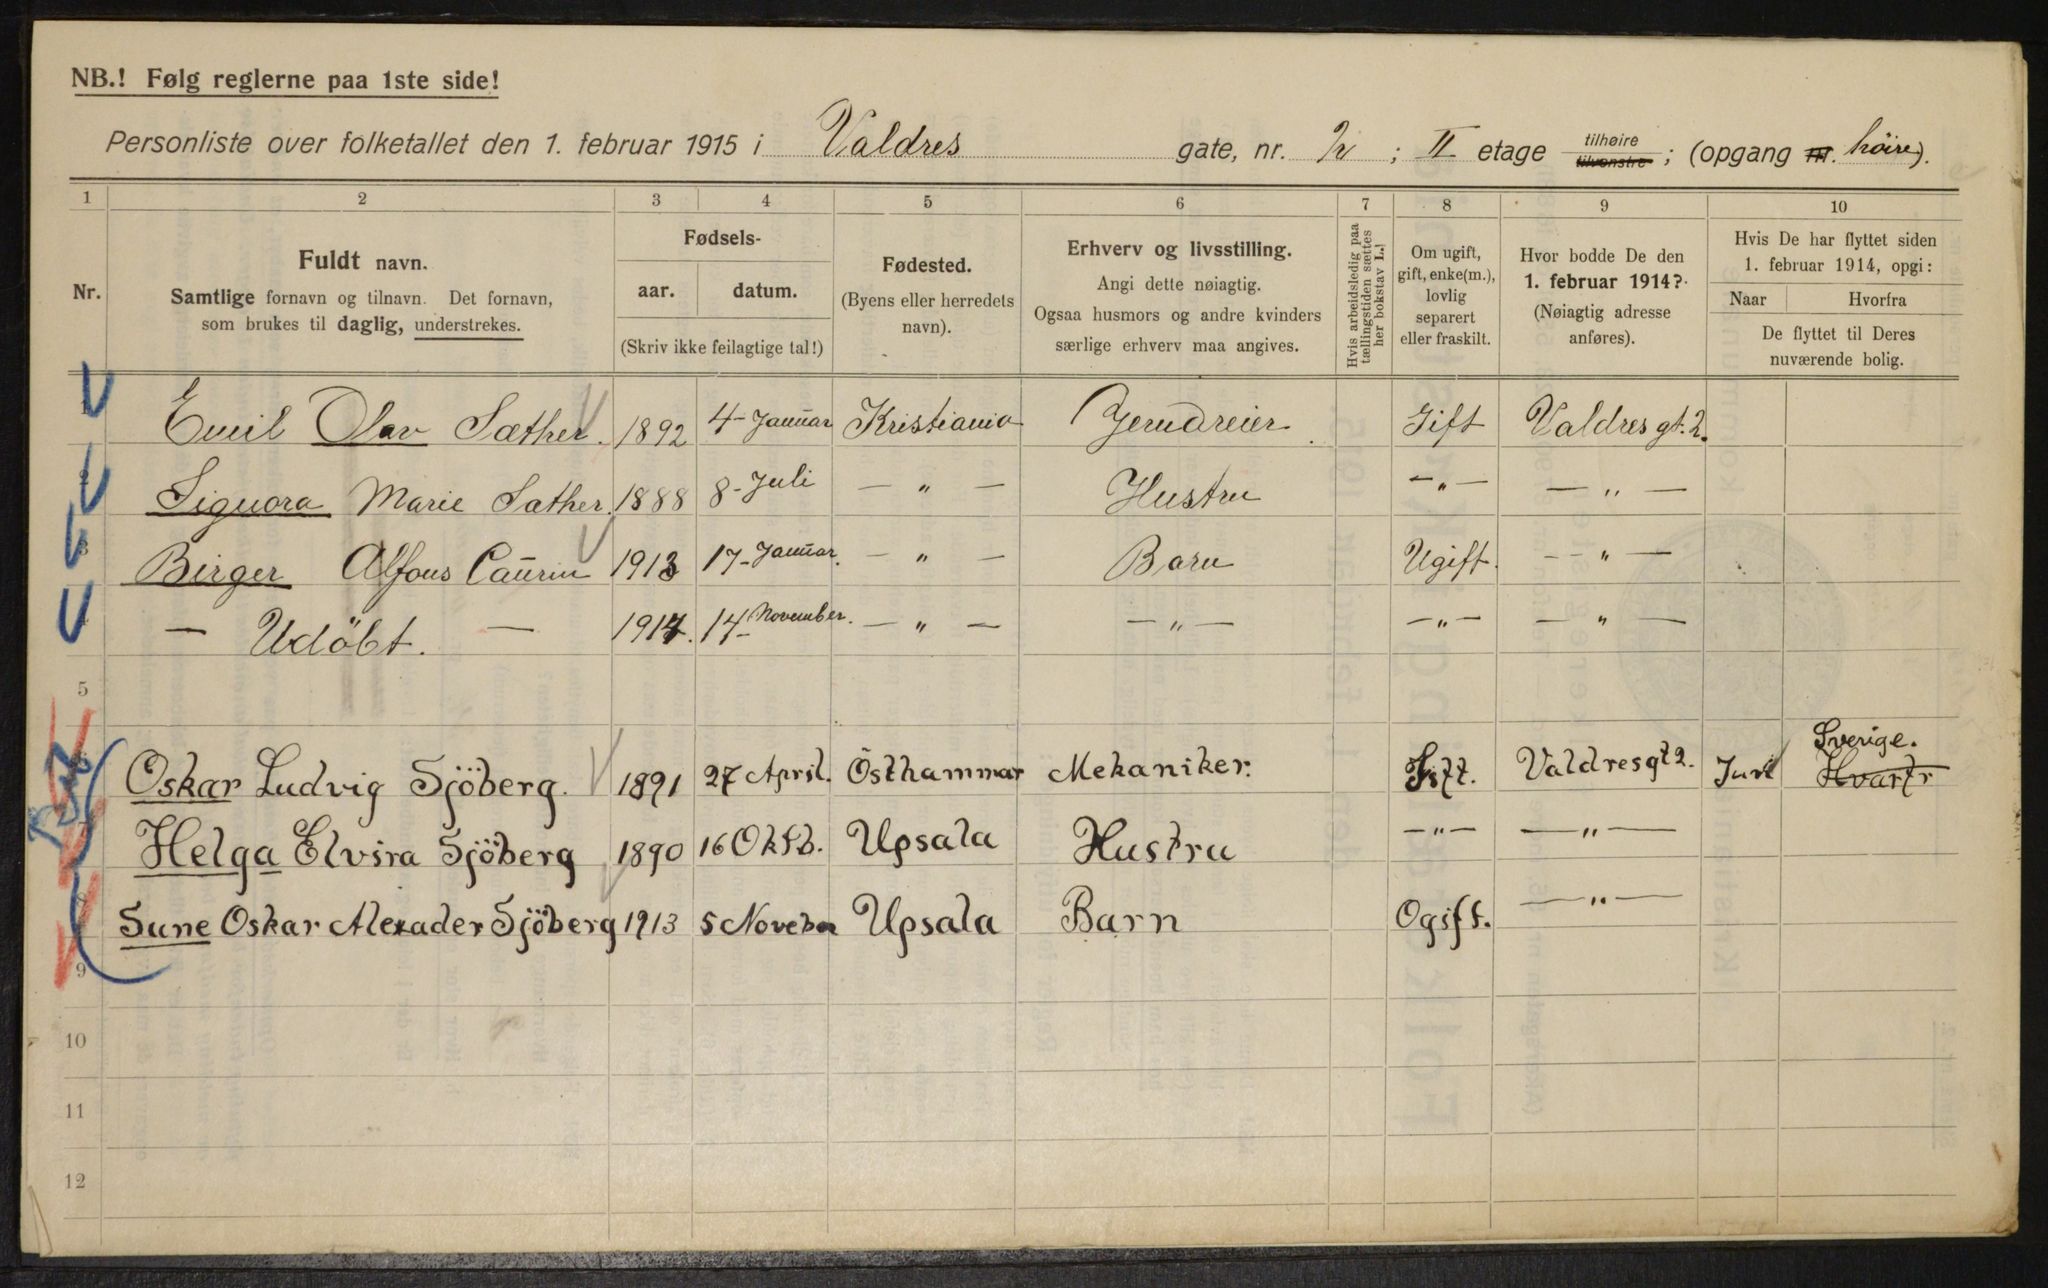 NB.! Følg reglerne paa 1ste side!
Personliste over folketallet den 1. februar 1915 i Valdres gate, nr. 2 ; II etage tilhøire tilvenstre ; (opgang nr. høire).
1 2 3 4 5 6 7 8 9 10
Nr.
Fuldt navn.
Samtlige fornavn og tilnavn. Det fornavn,
som brukes til daglig, understrekes.
Fødsels-
aar. datum.
(Skriv ikke feilagtige tal!)
Fødested.
(Byens eller herredets
navn).
Erhverv og livsstilling.
Angi dette nøiagtig.
Ogsaa husmors og andre kvinders
særlige erhverv maa angives.
Hvis arbeidsledig paa
tællingstiden sættes
her bokstav L.!
Om ugift,
gift, enke(m.),
lovlig
separert
eller fraskilt.
Hvor bodde De den
1. februar 1914?
(Nøiagtig adresse
anføres).
Hvis De har flyttet siden
1. februar 1914, opgi:
Naar Hvorfra
De flyttet til Deres
nuværende bolig.
Emil Olav Sæther. 1892 4-Januar Kristiania Jerndreier Gift Valdres gt. 2.
Signora Marie Sæther. 1888 8-Juli — „ — Hustru — „ — — „ —
3 Birger Alfons Laurin 1913 17-Januar. — „ — Barn Ugift. — „ —
— Udöbt. — 1914. 14-November. — „ — — „ — — „ — — „ —
5
Oskar Ludvig Sjöberg. 1891 27 April. Östhammar Mekaniker. Gift. Valdresgt 2. Sverige.
Helga Elvira Sjöberg 1890 16 Oktb. Upsala Hustru — „ — — „ —
Sune Oskar Alexader Sjöberg 1913 5 Noveber Upsala Barn Ogift. — „ —
9
10
11
12